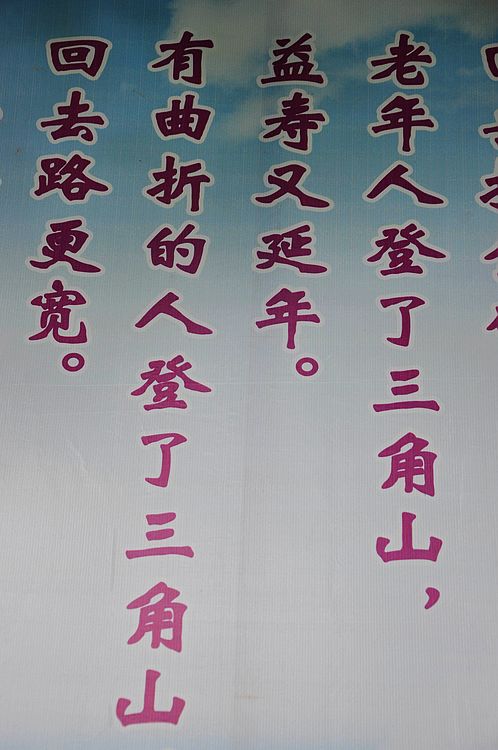 老年人登了三角山，
益寿又延年。
有曲折的人登了三角山
回去路更宽。